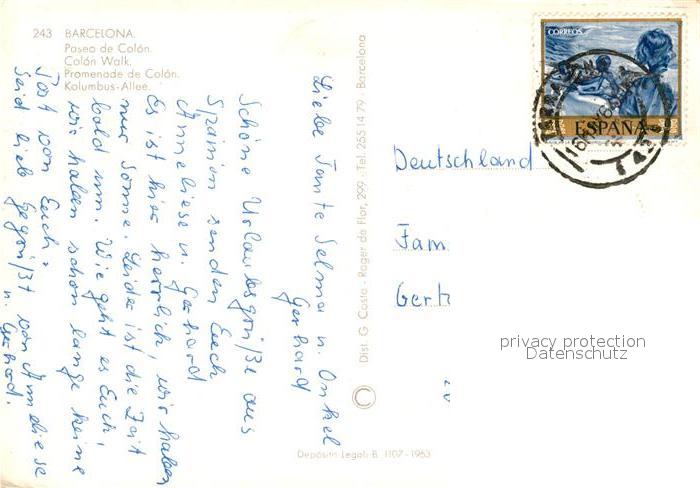 243 BARCELONA.
Paseo de Colón.
Colón Walk.
Promenade de Colón.
Kolumbus-Allee.
Liebe Tante Selma u. Onkel
Gerhard
Schöne Urlaubsgrüße aus
Spanien senden Euch
Anneliese u. Gerhard
Es ist hier herrlich, wir haben
nur Sonne. Leider ist die Zeit
bald um. Wie geht es Euch,
wir haben schon lange keine
Post von Euch.
Seid lieb gegrüßt von Anneliese
u. Gerhard.
Dist. G. Costa - Roger de Flor, 299 - Tel. 255 14 79 - Barcelona
Depósito Legal: B. 1107 - 1963
CORREOS
ESPAÑA
Deutschland
Fam
Gert
privacy protection
Datenschutz